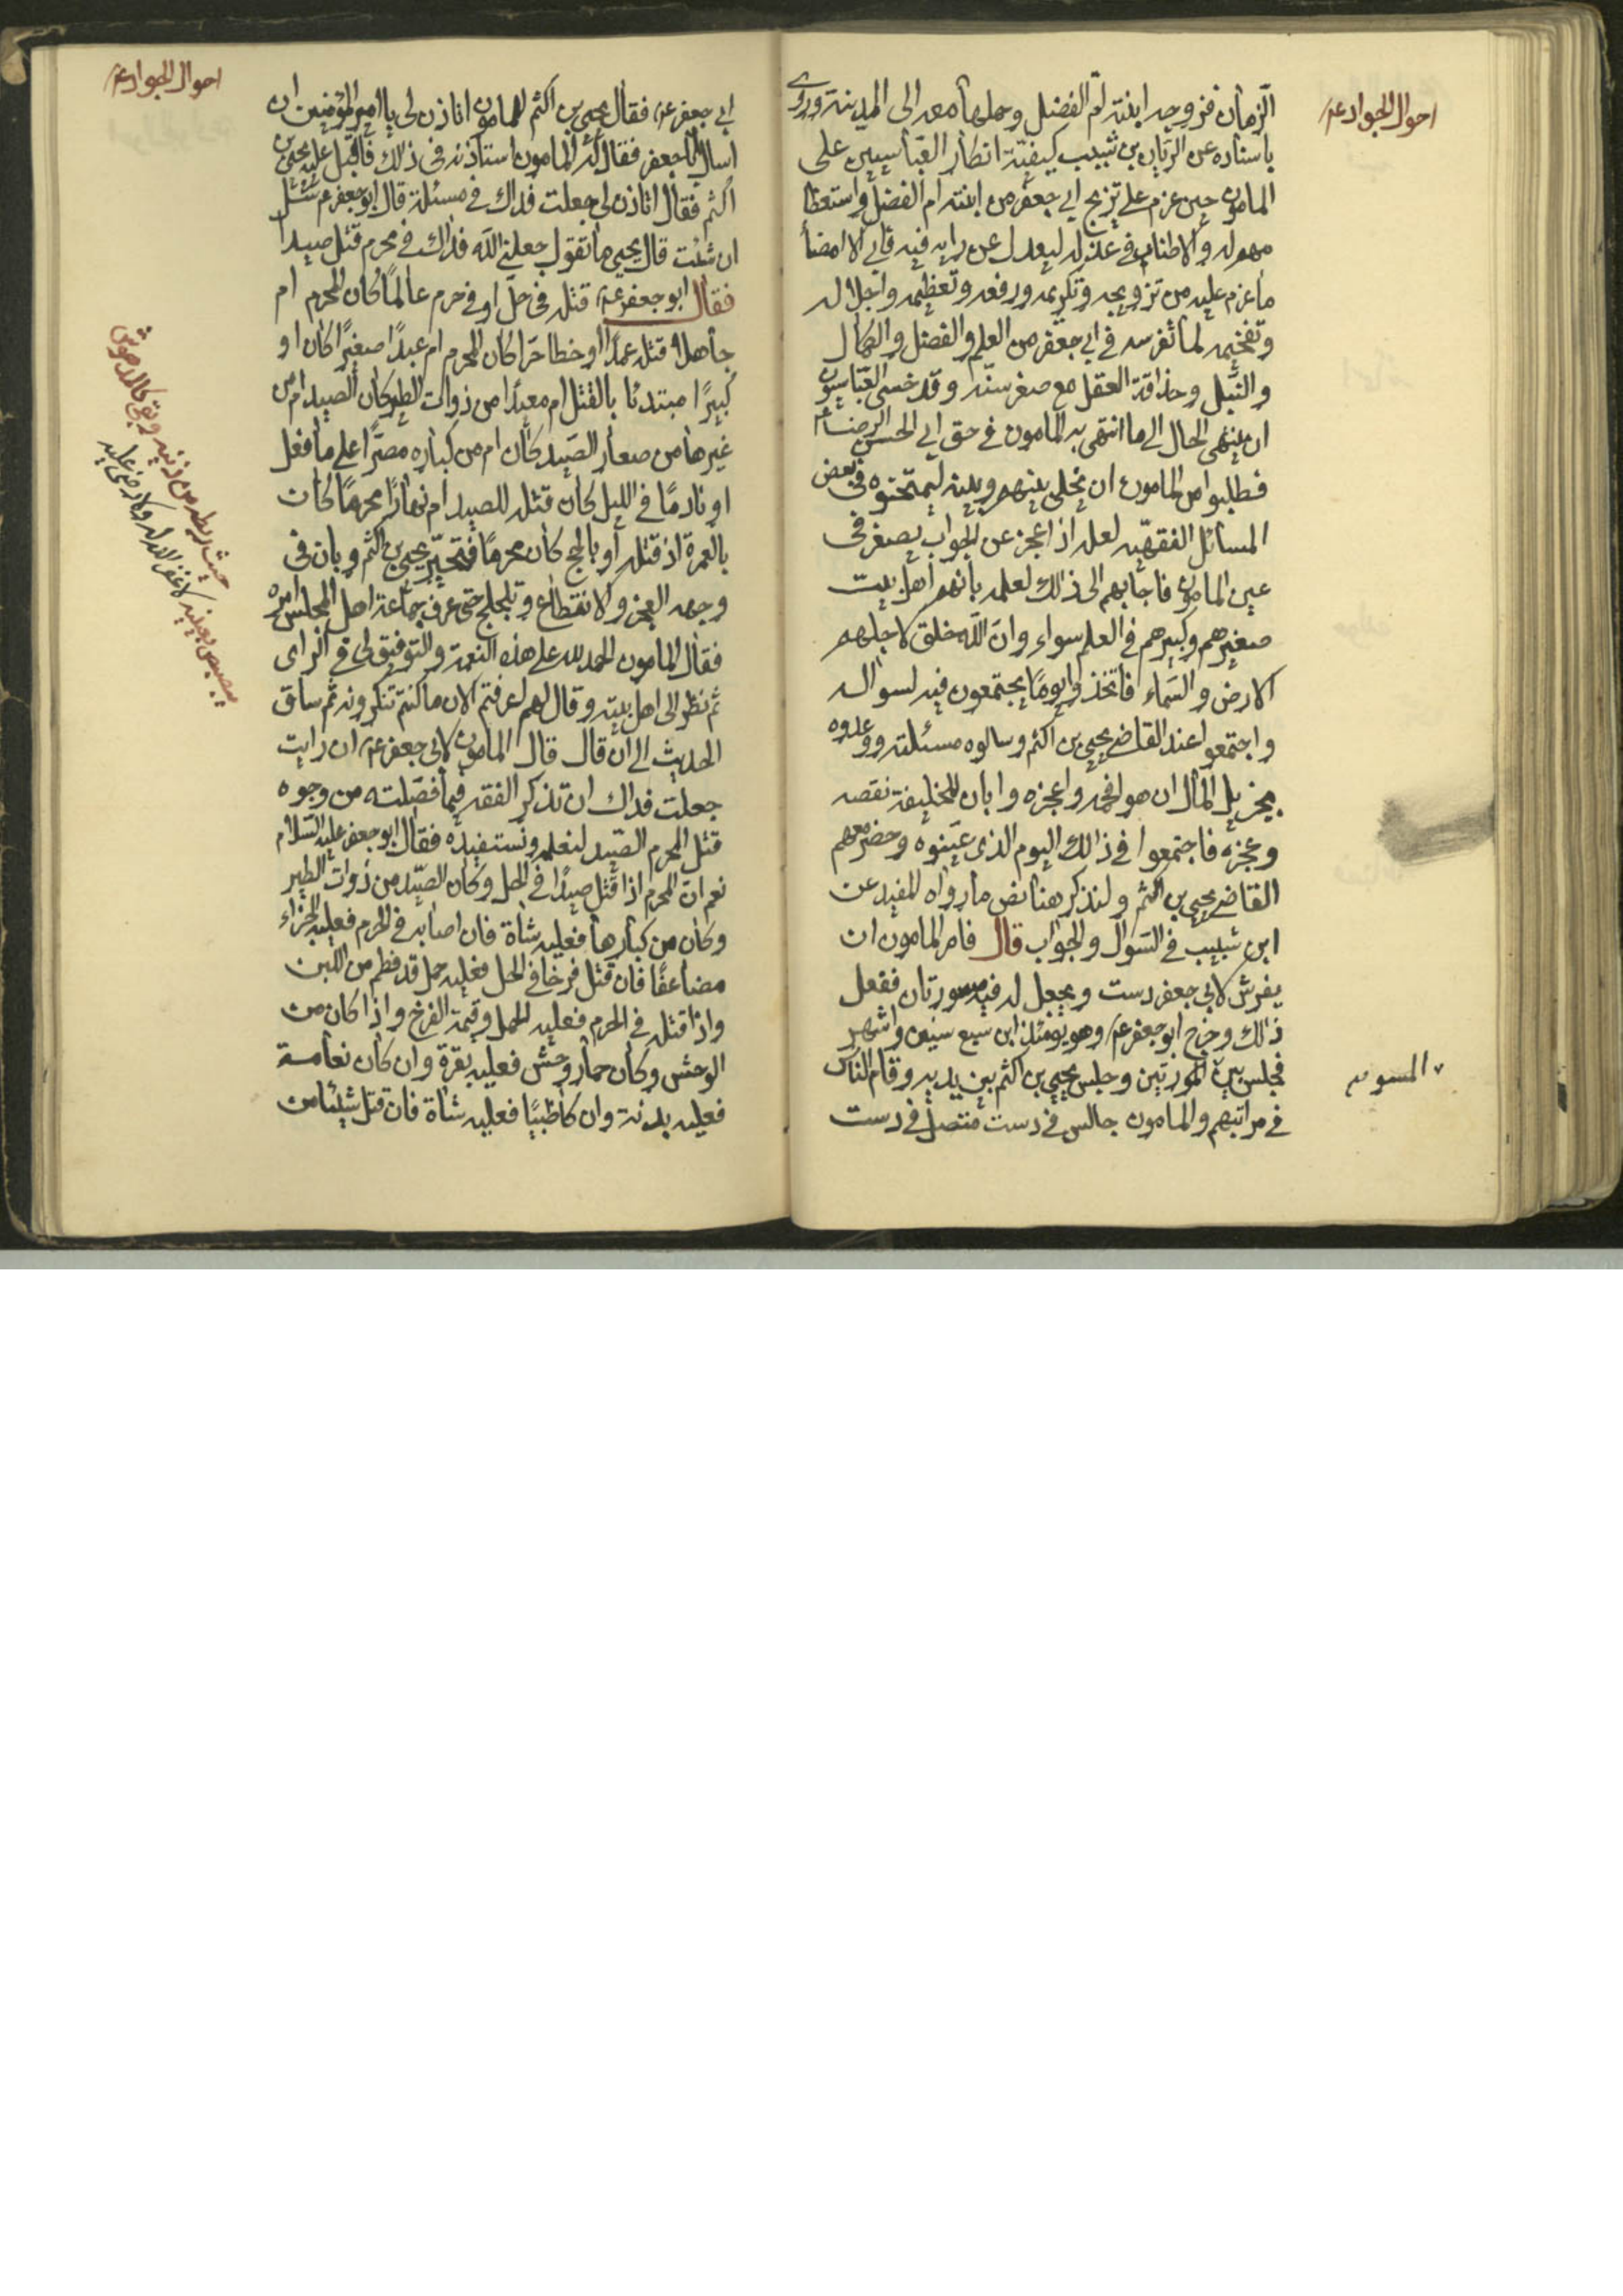 احوال الجواد ع
الزمان فزوجه ابنته ام الفضل وحملها معه الى المدينة وروى
باسناده عن الريان بن شبيب كيفية انكار العباسيين على
المامون حين عزم على تزويج ابي جعفر من ابنته ام الفضل واستعظا
مهم له والاطناب في عذله ليعدل عن رايه فيه فابى الا امضاء
ما عزم عليه من تزويجه وتكريمه ورفعه وتعظيمه واجلاله
وتفخيمه لما تفرسه في ابي جعفر من العلم والفضل والكمال
والنبل وحذاقة العقل مع صغر سنه وقد خشى العباسيون
ان ينتهى الحال الى ما انتهى به المامون في حق ابي الحسن الرضا ع
فطلبوا من المامون ان يخلى بينهم وبينه ليمتحنوه في بعض
المسائل الفقهيه لعله اذا عجز عن الجواب يصغر في
عين المامون فاجابهم الى ذلك لعلمه بانهم اهل بيت
صغيرهم وكبيرهم في العلم سواء وان الله خلق لاجلهم
الارض والسماء فاتخذوا يوما يجتمعون فيه لسواله
واجتمعوا عند القاضي يحيى بن اكثم وسالوه مسئلته ووعدوه
بجزيل المال ان هو افحمه واعجزه وابان للخليفة نقصه
وعجزه فاجتمعوا في ذلك اليوم الذى عينوه وحضر معهم
القاضي يحيى بن اكثم ولنذكر هنا نص ما رواه المفيد عن
ابن شبيب في السوال والجواب قال فامر المامون ان
يفرش لابي جعفر دست ويجعل له فيه مسورتان ففعل
ذلك وخرج ابو جعفر ع وهو يومئذ ابن سبع سنين واشهر
فجلس بين المسورتين وجلس يحيى بن اكثم بين يديه وقام الناس
في مراتبهم والمامون جالس في دست متصل في دست
احوال الجواد ع
ابي جعفر ع فقال يحيى بن اكثم للمامون اتاذن لى يا امير المؤمنين ان
اسال ابا جعفر فقال له المامون استاذنه في ذلك فاقبل عليه يحيى بن
اكثم فقال اتاذن لى جعلت فداك في مسئلة قال ابو جعفر ع سل
ان شئت قال يحيى ما تقول جعلني الله فداك في محرم قتل صيدا
فقال ابو جعفر ع قتله في حل او في حرم عالما كان المحرم ام
جاهلا قتله عمدا او خطا حرا كان المحرم ام عبدا صغيرا كان او
كبيرا مبتدئا بالقتل ام معيدا من ذوات الطير كان الصيد ام من
غيرها من صغار الصيد كان ام من كباره مصرا على ما فعل
او نادما في الليل كان قتله للصيد ام نهارا محرما كان
بالعمرة اذ قتله او بالحج كان محرما فتحير يحيى بن اكثم وبان في
وجهه العجز والانقطاع وتلجلج حتى عرف جماعة اهل المجلس امره
فقال المامون الحمد لله على هذه النعمة والتوفيق لى في الراى
ثم نظر الى اهل بيته وقال لهم اعرفتم الان ما كنتم تنكرونه ثم ساق
الحديث الى ان قال قال المامون لابي جعفر ع ان رايت
جعلت فداك ان تذكر الفقه فيما فصلته من وجوه
قتل المحرم الصيد لنعلمه ونستفيده فقال ابو جعفر عليه السلام
نعم ان المحرم اذا قتل صيدا في الحل وكان الصيد من ذوات الطير
وكان من كبارها فعليه شاة فان اصابه في الحرم فعليه الجزاء
مضاعفا فان قتل فرخا في الحل فعليه حمل قد فطم من اللبن
واذا قتله في الحرم فعليه الحمل وقيمة الفرخ واذا كان من
الوحش وكان حمار وحش فعليه بقرة وان كان نعامة
فعليه بدنة وان كان ظبيا فعليه شاة فان قتل شيئا من